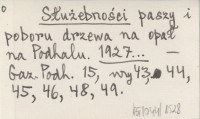 Służebności paszy i
poboru drzewa na opał
na Podhalu. 1927... —
Gaz. Podh. 15, nry 43, 44,
45, 46, 48, 49.